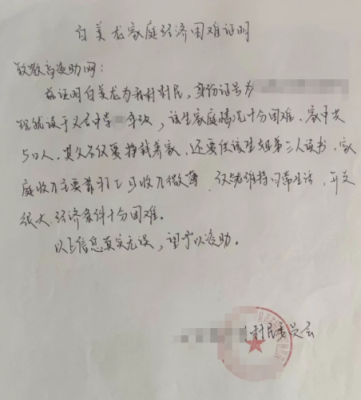 白美龙家庭经济困难证明
致敬高援助网：
兹证明白美龙为我村村民，身份证号为
现就读于 中学 年级，该生家庭情况十分困难，家中共
5口人，其父不仅要挣钱养家，还要供该生姐弟三人读书，家
庭收入主要靠打工所收入微薄，仅能维持日常生活，开支
很大，经济条件十分困难。
以上信息真实无误，请予以援助。
村民委员会